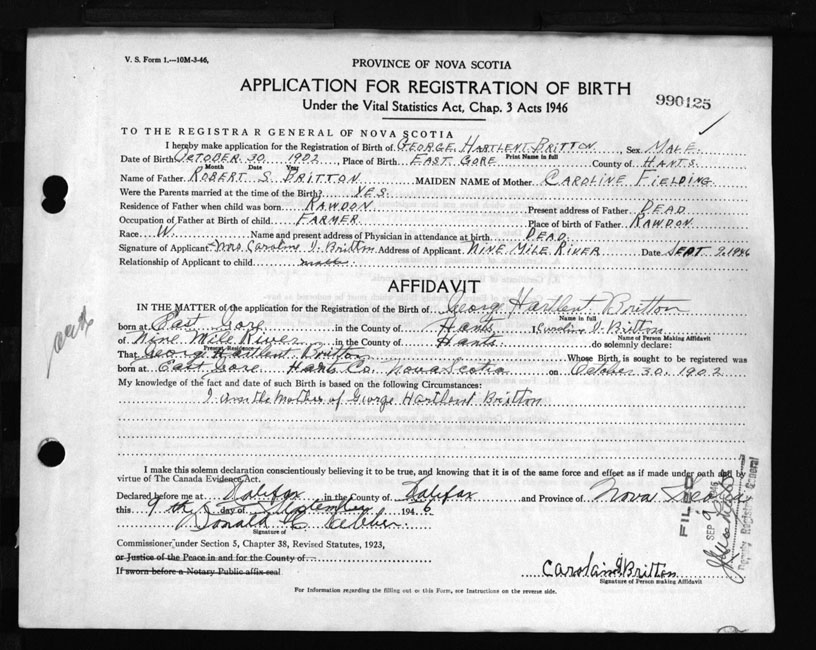 V. S. Form 1.—10M-3-46,
PROVINCE OF NOVA SCOTIA
APPLICATION FOR REGISTRATION OF BIRTH
Under the Vital Statistics Act, Chap. 3 Acts 1946
990125
TO THE REGISTRAR GENERAL OF NOVA SCOTIA
I hereby make application for the Registration of Birth of GEORGE HARTLENT BRITTON, Sex MALE.
Print Name in full
Date of Birth OCTOBER 30 1902, Place of Birth EAST GORE County of HANTS.
Month Date Year
Name of Father ROBERT S BRITTON MAIDEN NAME of Mother CAROLINE FIELDING
Were the Parents married at the time of the Birth? YES.
Residence of Father when child was born RAWDON Present address of Father DEAD
Occupation of Father at Birth of child FARMER Place of birth of Father RAWDON
Race W. Name and present address of Physician in attendance at birth DEAD
Signature of Applicant Mrs Caroline I. Britton Address of Applicant NINE MILE RIVER Date SEPT 9, 1946
Relationship of Applicant to child
AFFIDAVIT
IN THE MATTER of the application for the Registration of Birth of Georg Hartlent Britton
Name in full
born at East Gore in the County of Hants I Caroline I. Britton
Name of Person Making Affidavit
of Nine Mile River in the County of Hants. do solemnly declare:
Present Residence
That Georg Hartlent Britton Whose Birth, is sought to be registered was
born at East Gore Hants Co. Nova Scotia on October 30, 1902
My knowledge of the fact and date of such Birth is based on the following Circumstances:
I am the Mother of George Hartlent Britton
I make this solemn declaration conscientiously believing it to be true, and knowing that it is of the same force and effect as if made under oath and by
virtue of The Canada Evidence Act.
Declared before me at Halifax in the County of Halifax and Province of Nova Scotia
this 9 th day of September 194 6
Donald
Signature of
Commissioner under Section 5, Chapter 38, Revised Statutes, 1923,
or Justice of the Peace in and for the County of
If sworn before a Notary Public affix seal
Carolain I Britton
Signature of Person making Affidavit
For Information regarding the filling out of this Form, see Instructions on the reverse side.
FILED
SEP 9 1946
Deputy Registrar General